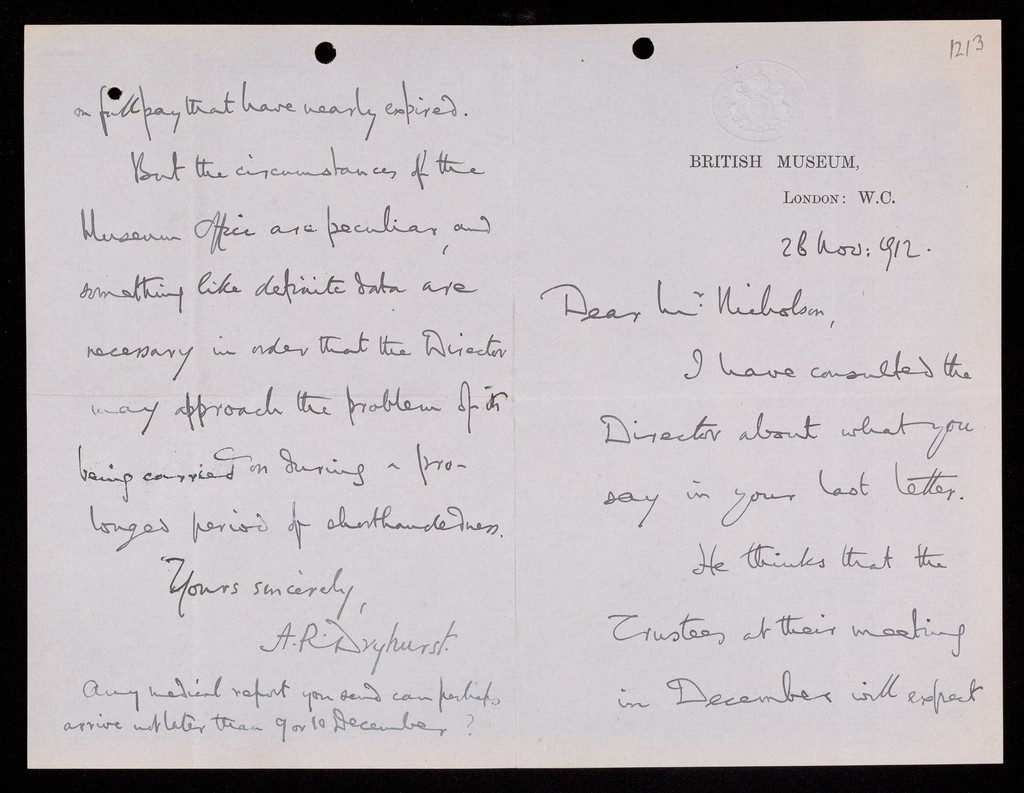 1213
BRITISH MUSEUM,
LONDON: W.C.
26 Nov: 1912.
Dear Mr. Nicholson,
I have consulted the
Director about what you
say in your last letter.
He thinks that the
Trustees at their meeting
in December will expect
on full pay that have nearly expired.
But the circumstances of the
Museum Office are peculiar, and
something like definite data are
necessary in order that the Director
may approach the problem of its
being carried on during a pro-
longed period of shorthandedness.
Yours sincerely,
A.R. Dryhurst.
Any medical report you send can perhaps
arrive not later than 9 or 10 December?